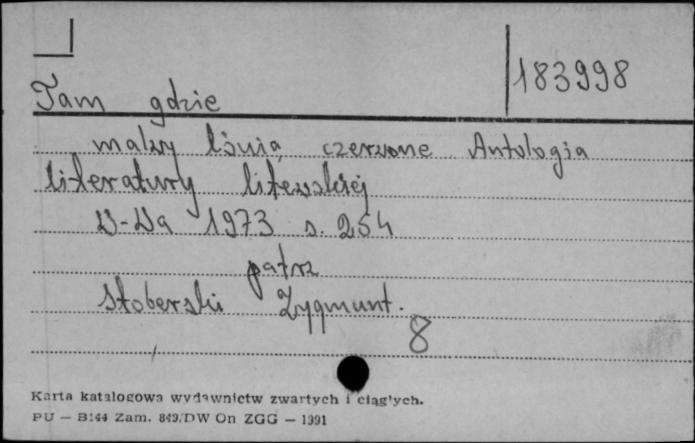 183998
Tam gdzie
malwy lśnią czerwone Antologia
literatury litewskiej
W-Wa 1973 s. 254
patrz
Stoberski Zygmunt.
8
Karta katalogowa wydawnictw zwartych i ciągłych.
PU — B144 Zam. 849/DW On ZGG — 1991